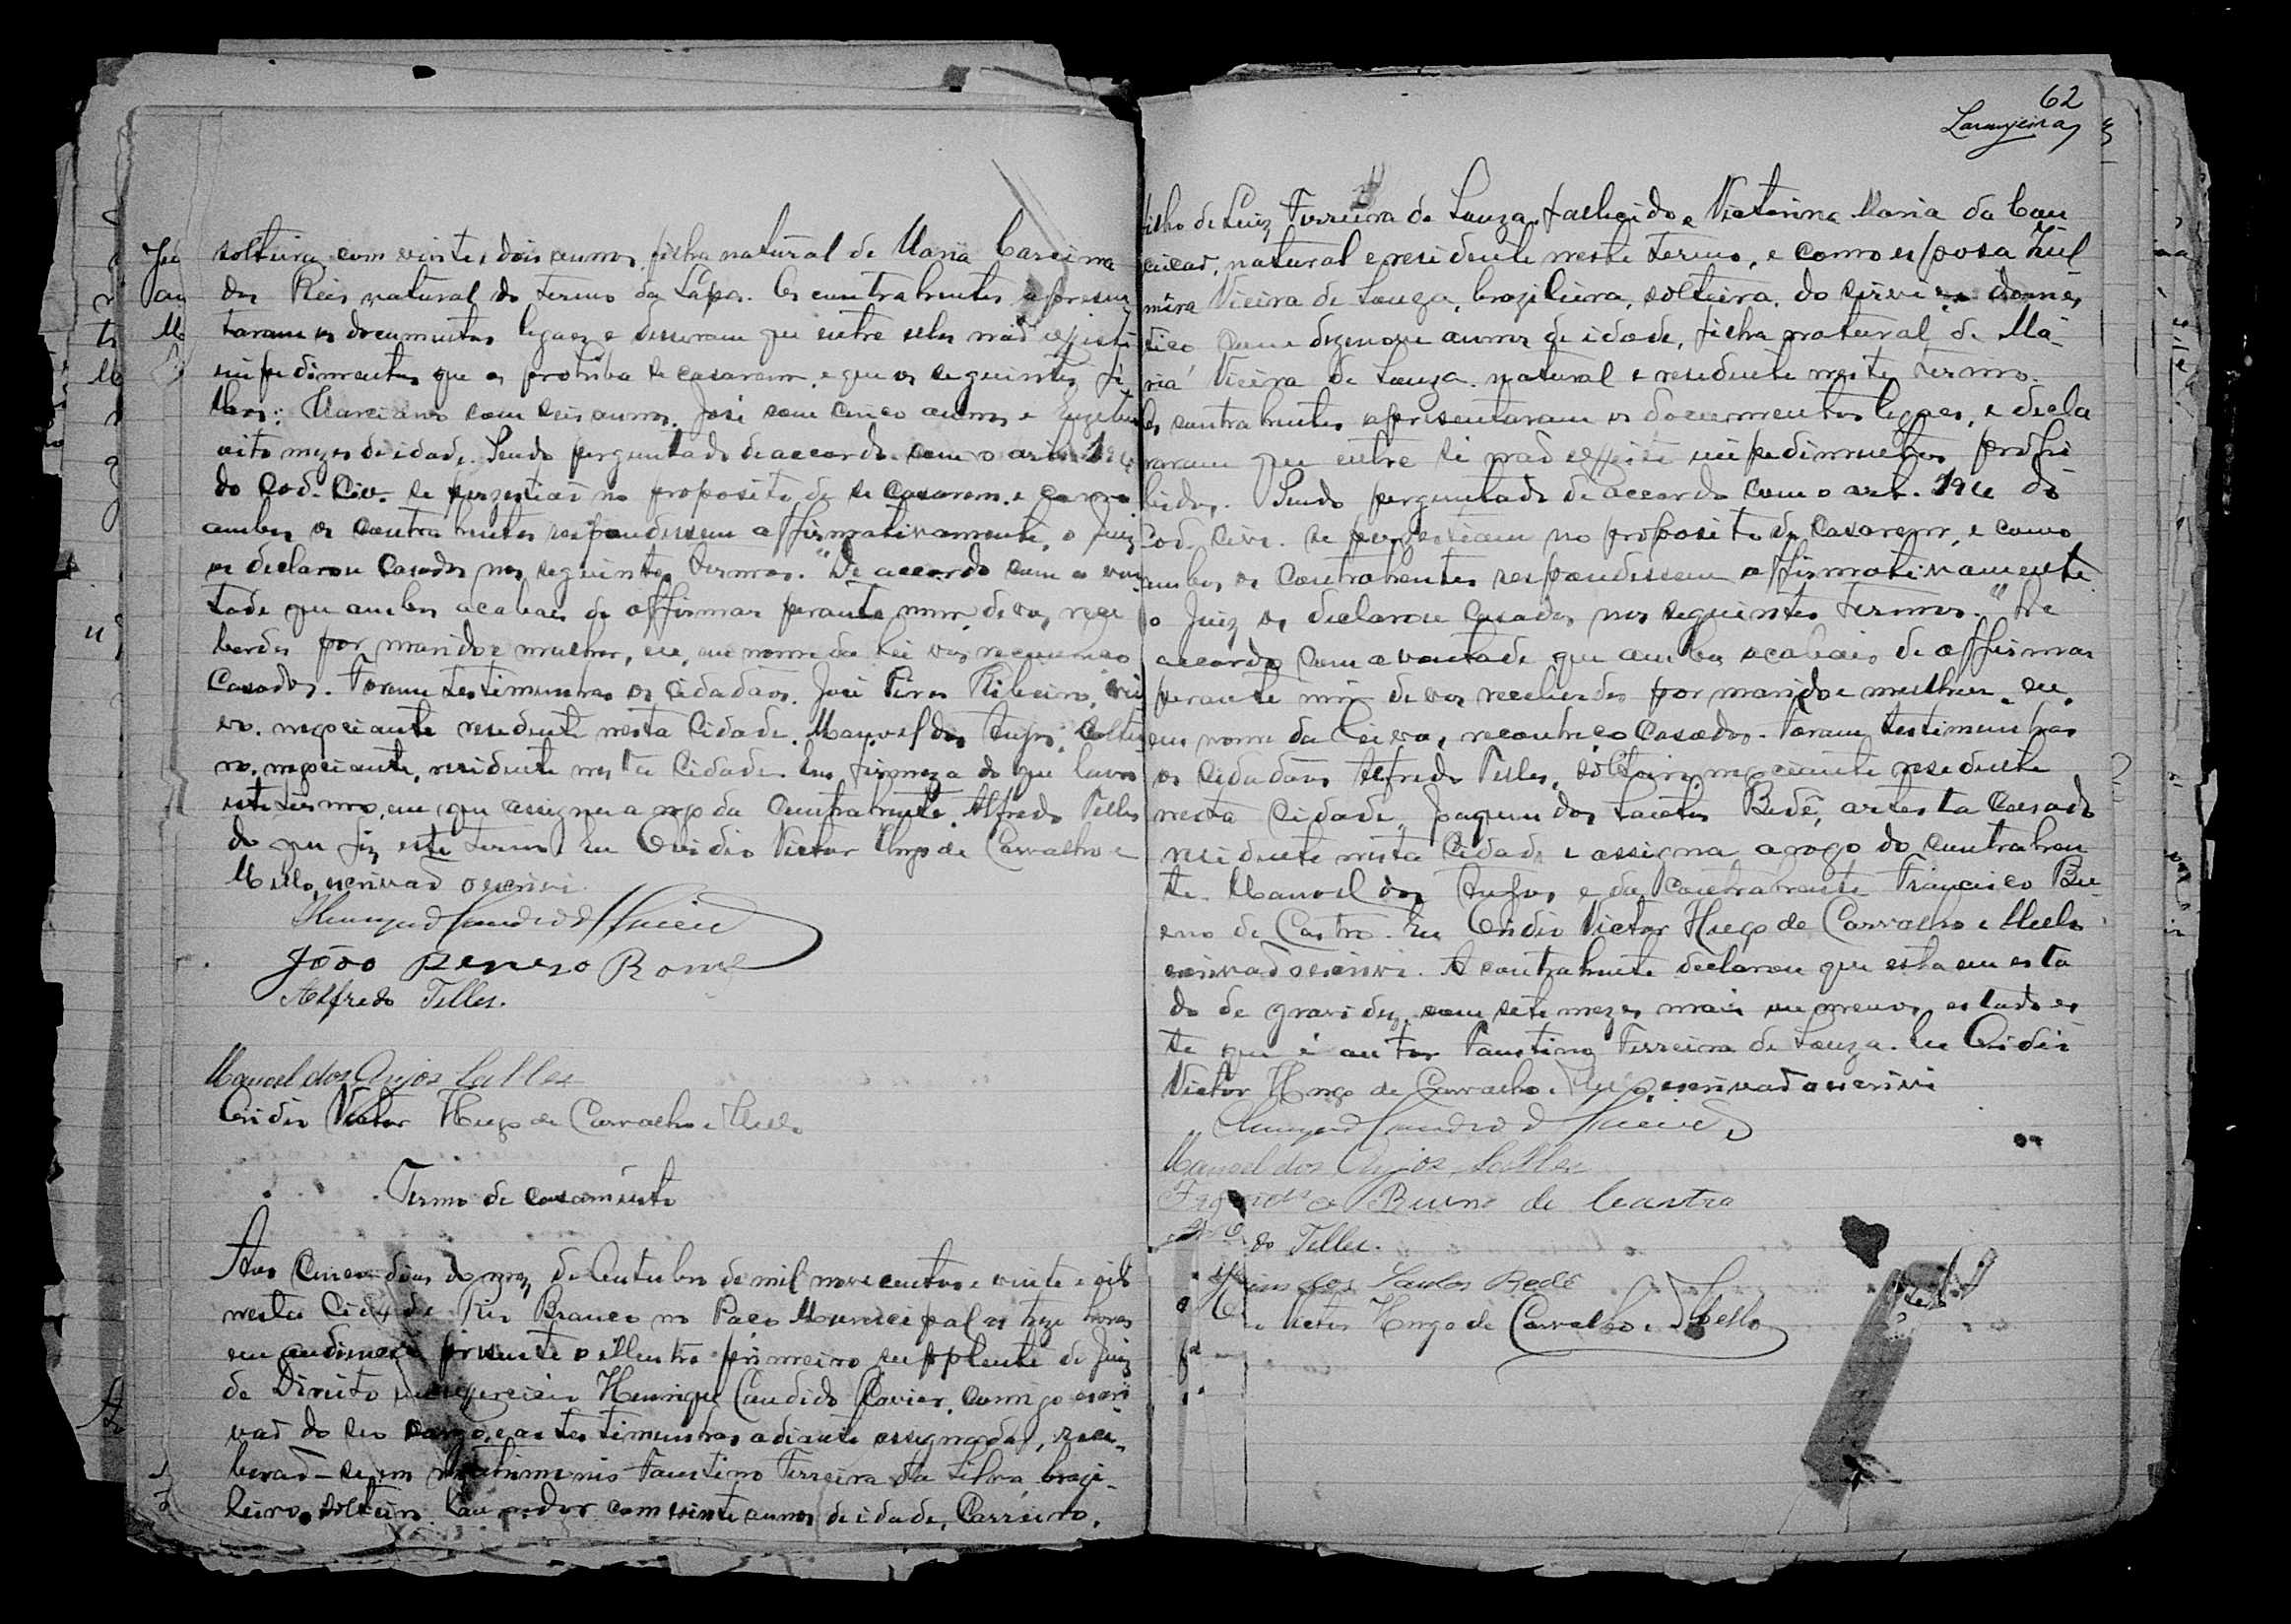 solteira, com vinte e dois annos, filha natural de Maria Carsina
dos Reis natural do termo da Lapa. Os contrahentes apresen
taram os documentos legaes e disseram que entre elles naõ existi
impedimentos que os prohiba de casarem, e que os seguintes fi
lhos: Marciano com seis annos, José com cinco annos e
oito mezes de idade. Sendo perguntado de accordo com o art. 194
do Cod. Civ. se persestiaõ no proposito de se casarem, e como
ambos os contrahentes respondessem affirmativamente, o Juiz
os declarou casados nos seguintes termos. "De accordo com a von
tade que ambos acabaes de affirmar perante mim, de vos rece
berdes por marido e mulher, eu, em nome da lei vos reconheço
Casados. Foram testimunhas os cidadãos José Pires Ribeiro, viu
vo, negociante residente nesta Cidade. Manoel dos Anjos, soltei
ro, negociante, residente nesta Cidade. Em firmeza do que lavro
este termo, em que assigna a rogo da Contrahente, Alfredo Telles
do que fiz este termo. Eu Ovidio Victor Hugo de Carvalho e
Mello, escrivaõ o escrivi.
João
Alfredo Telles.
Manoel dos Anjos Salles
Ovidio Victor Hugo de Carvalho e Mello
Termo de casamento
Aos Cinco dias do mez de Outubro de mil nove centos e vinte e oito
nesta Cidade Rio Branco no Paço Municipal as treze horas
em audiencia presente o illustre primeiro supplente de Juiz
de Direito em exercicio Henrique Candido Xavier, comigo escri
vaõ do seu cargo, e as testimunhas adiante assignadas, rece-
beraõ-se em matrimonio Faustino Ferreira da Silva, brazi-
leiro, solteiro, com vinte annos de idade, Carreiro,
62
Laranjeira
filho de Luiz Ferreira de Souza, fallecido e Victorina Maria da Con
ceicaõ, natural e residente neste termo, e como esposa Zul
mira Vieira de Souza, brazileira, solteira, do servico domes
tico com dezenove annos de idade, filha natural de Ma-
ria Vieira de Souza, natural e residente neste termo.
Os contrahentes apresentaram os documentos legaes, e decla
raram que entre si naõ existe impedimentos prohi
bidos. Sendo perguntado de accordo com o art. 194 do
Cod. Civ. se persestiam no proposito de casarem, e como
ambos os Contrahentes respondessem affirmativamente
o Juiz os declarou casados nos seguintes termos. "De
accordo com a vontade que ambos acabais de affirmar
perante mim de vos receberdes por marido e mulher, eu,
em nome da Lei vos, reconheço Casados. Foram testimunhas
os Cidadãos Alfredo Telles, solteiro, negociante residente
nesta Cidade, Joaquim dos Santos Bedê, artesta Casado
residente nesta Cidade e assigna a rogo do contrahen
te Manoel dos Anjos e da Contrahente Francisco Bu-
eno de Castro. Eu Ovidio Victor Hugo de Carvalho e Mello
escrivaõ o escrivi. A contrahente declarou que esta em esta
do de gravidez, com sete mezes mais ou menos, estado es
te que é autor Faustino Ferreira de Souza. Eu Ovidio
Victor Hugo de Carvalho e Mello, escrivaõ o escrivi
Manoel dos Anjos Salles
Bueno de Castro
do Telles.
dos Santos Bedê
Victor Hugo de Carvalho e Mello